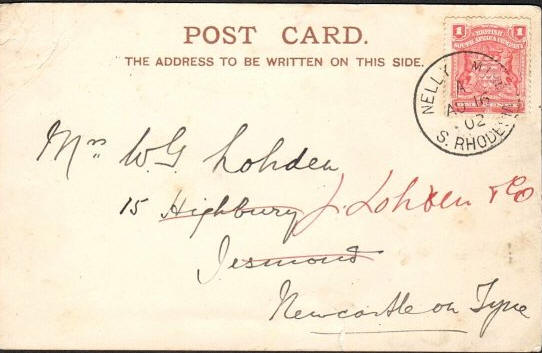 POST CARD.
THE ADDRESS TO BE WRITTEN ON THIS SIDE.
1 BRITISH 1
SOUTH AFRICA COMPANY
NELLY
A
AU 16
02
S. RHODE
Mrs W.G. Lohden
15 Highbury J. Lohden & Co
Jesmond
Newcastle on Tyne